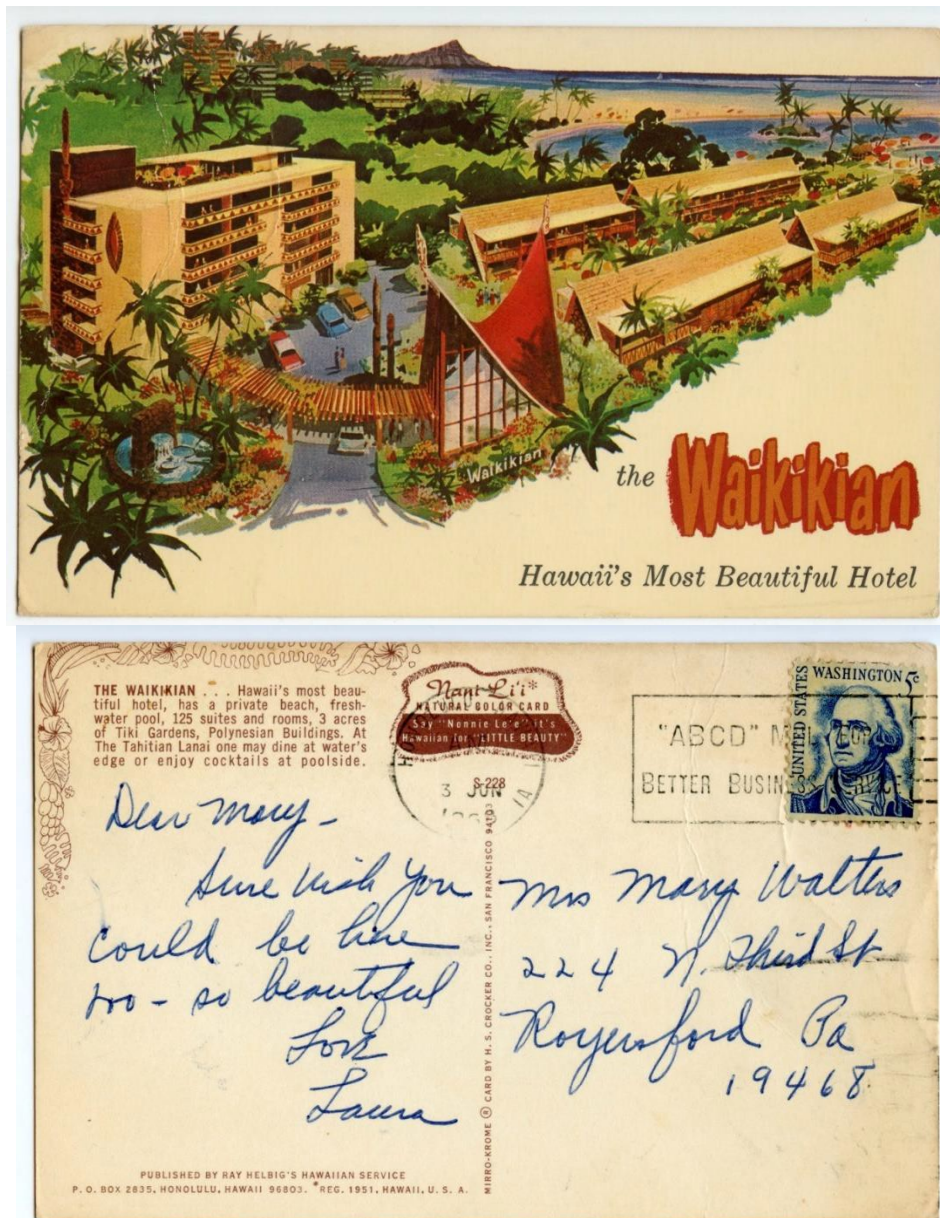 Waikikian
the Waikikian
Hawaii's Most Beautiful Hotel
THE WAIKIKIAN . . . Hawaii's most beau-
tiful hotel, has a private beach, fresh-
water pool, 125 suites and rooms, 3 acres
of Tiki Gardens, Polynesian Buildings. At
The Tahitian Lanai one may dine at water's
edge or enjoy cocktails at poolside.
Nani Li'i*
NATURAL COLOR CARD
Say "Nonnie Le'e" it's
Hawaiian for "LITTLE BEAUTY"
S-228
3 JUN
"ABCD"
BETTER BUSINESS SERVICE
UNITED STATES
WASHINGTON 5c
Dear Mary -
Sure Wish You
could be here
too - so beautiful
Love
Laura
MIRRO-KROME ® CARD BY H. S. CROCKER CO., INC., SAN FRANCISCO 94103
Mrs Mary Walters
224 N. Third St
Royersford Pa
19468
PUBLISHED BY RAY HELBIG'S HAWAIIAN SERVICE
P. O. BOX 2835, HONOLULU, HAWAII 96803. *REG. 1951, HAWAII, U. S. A.